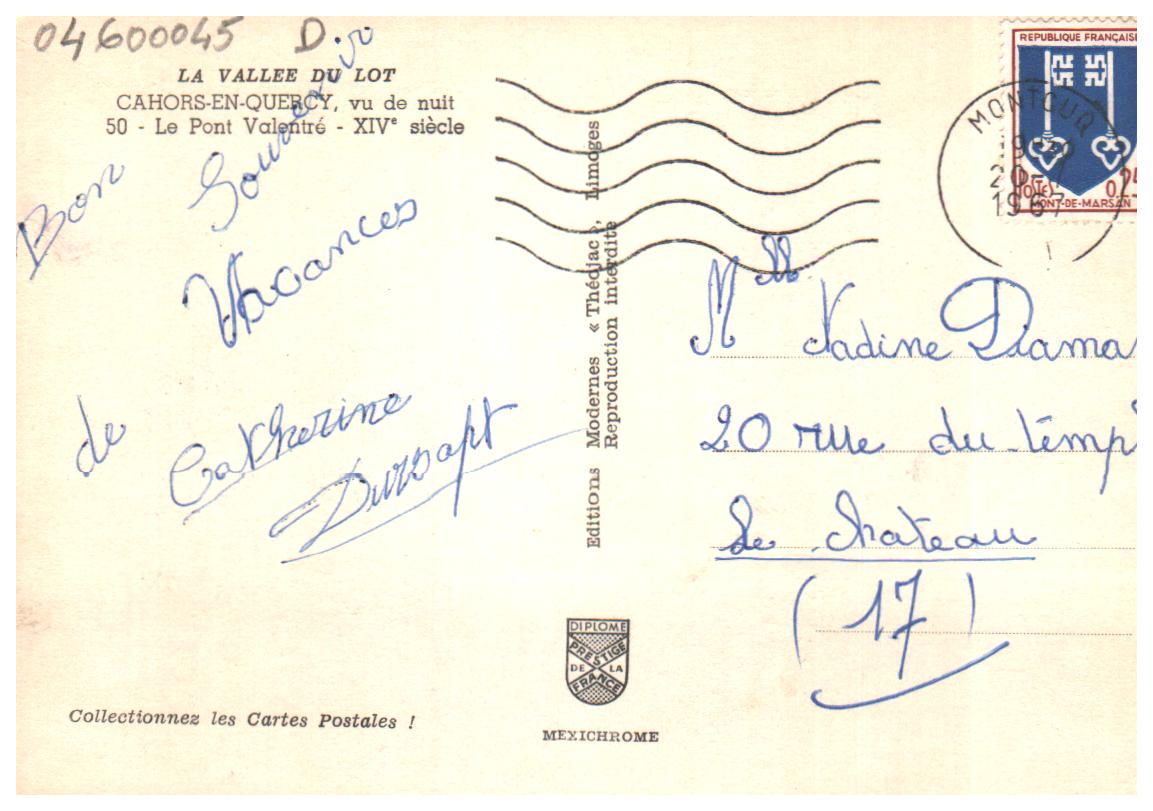 04600045 D.
LA VALLEE DU LOT
CAHORS-EN-QUERCY, vu de nuit
50 - Le Pont Valentré - XIVe siècle
Bon Souvenir
Vacances
de Catherine
Dursapt
Editions Modernes « Théojac », Limoges
Reproduction interdite
REPUBLIQUE FRANÇAISE
MONTCUQ
1967
(Lot)
MONT-DE-MARSAN
Mlle Nadine Diama
20 rue du temp
Le chateau
(17)
DIPLOME
PRESTIGE
DE LA
FRANCE
MEXICHROME
Collectionnez les Cartes Postales !